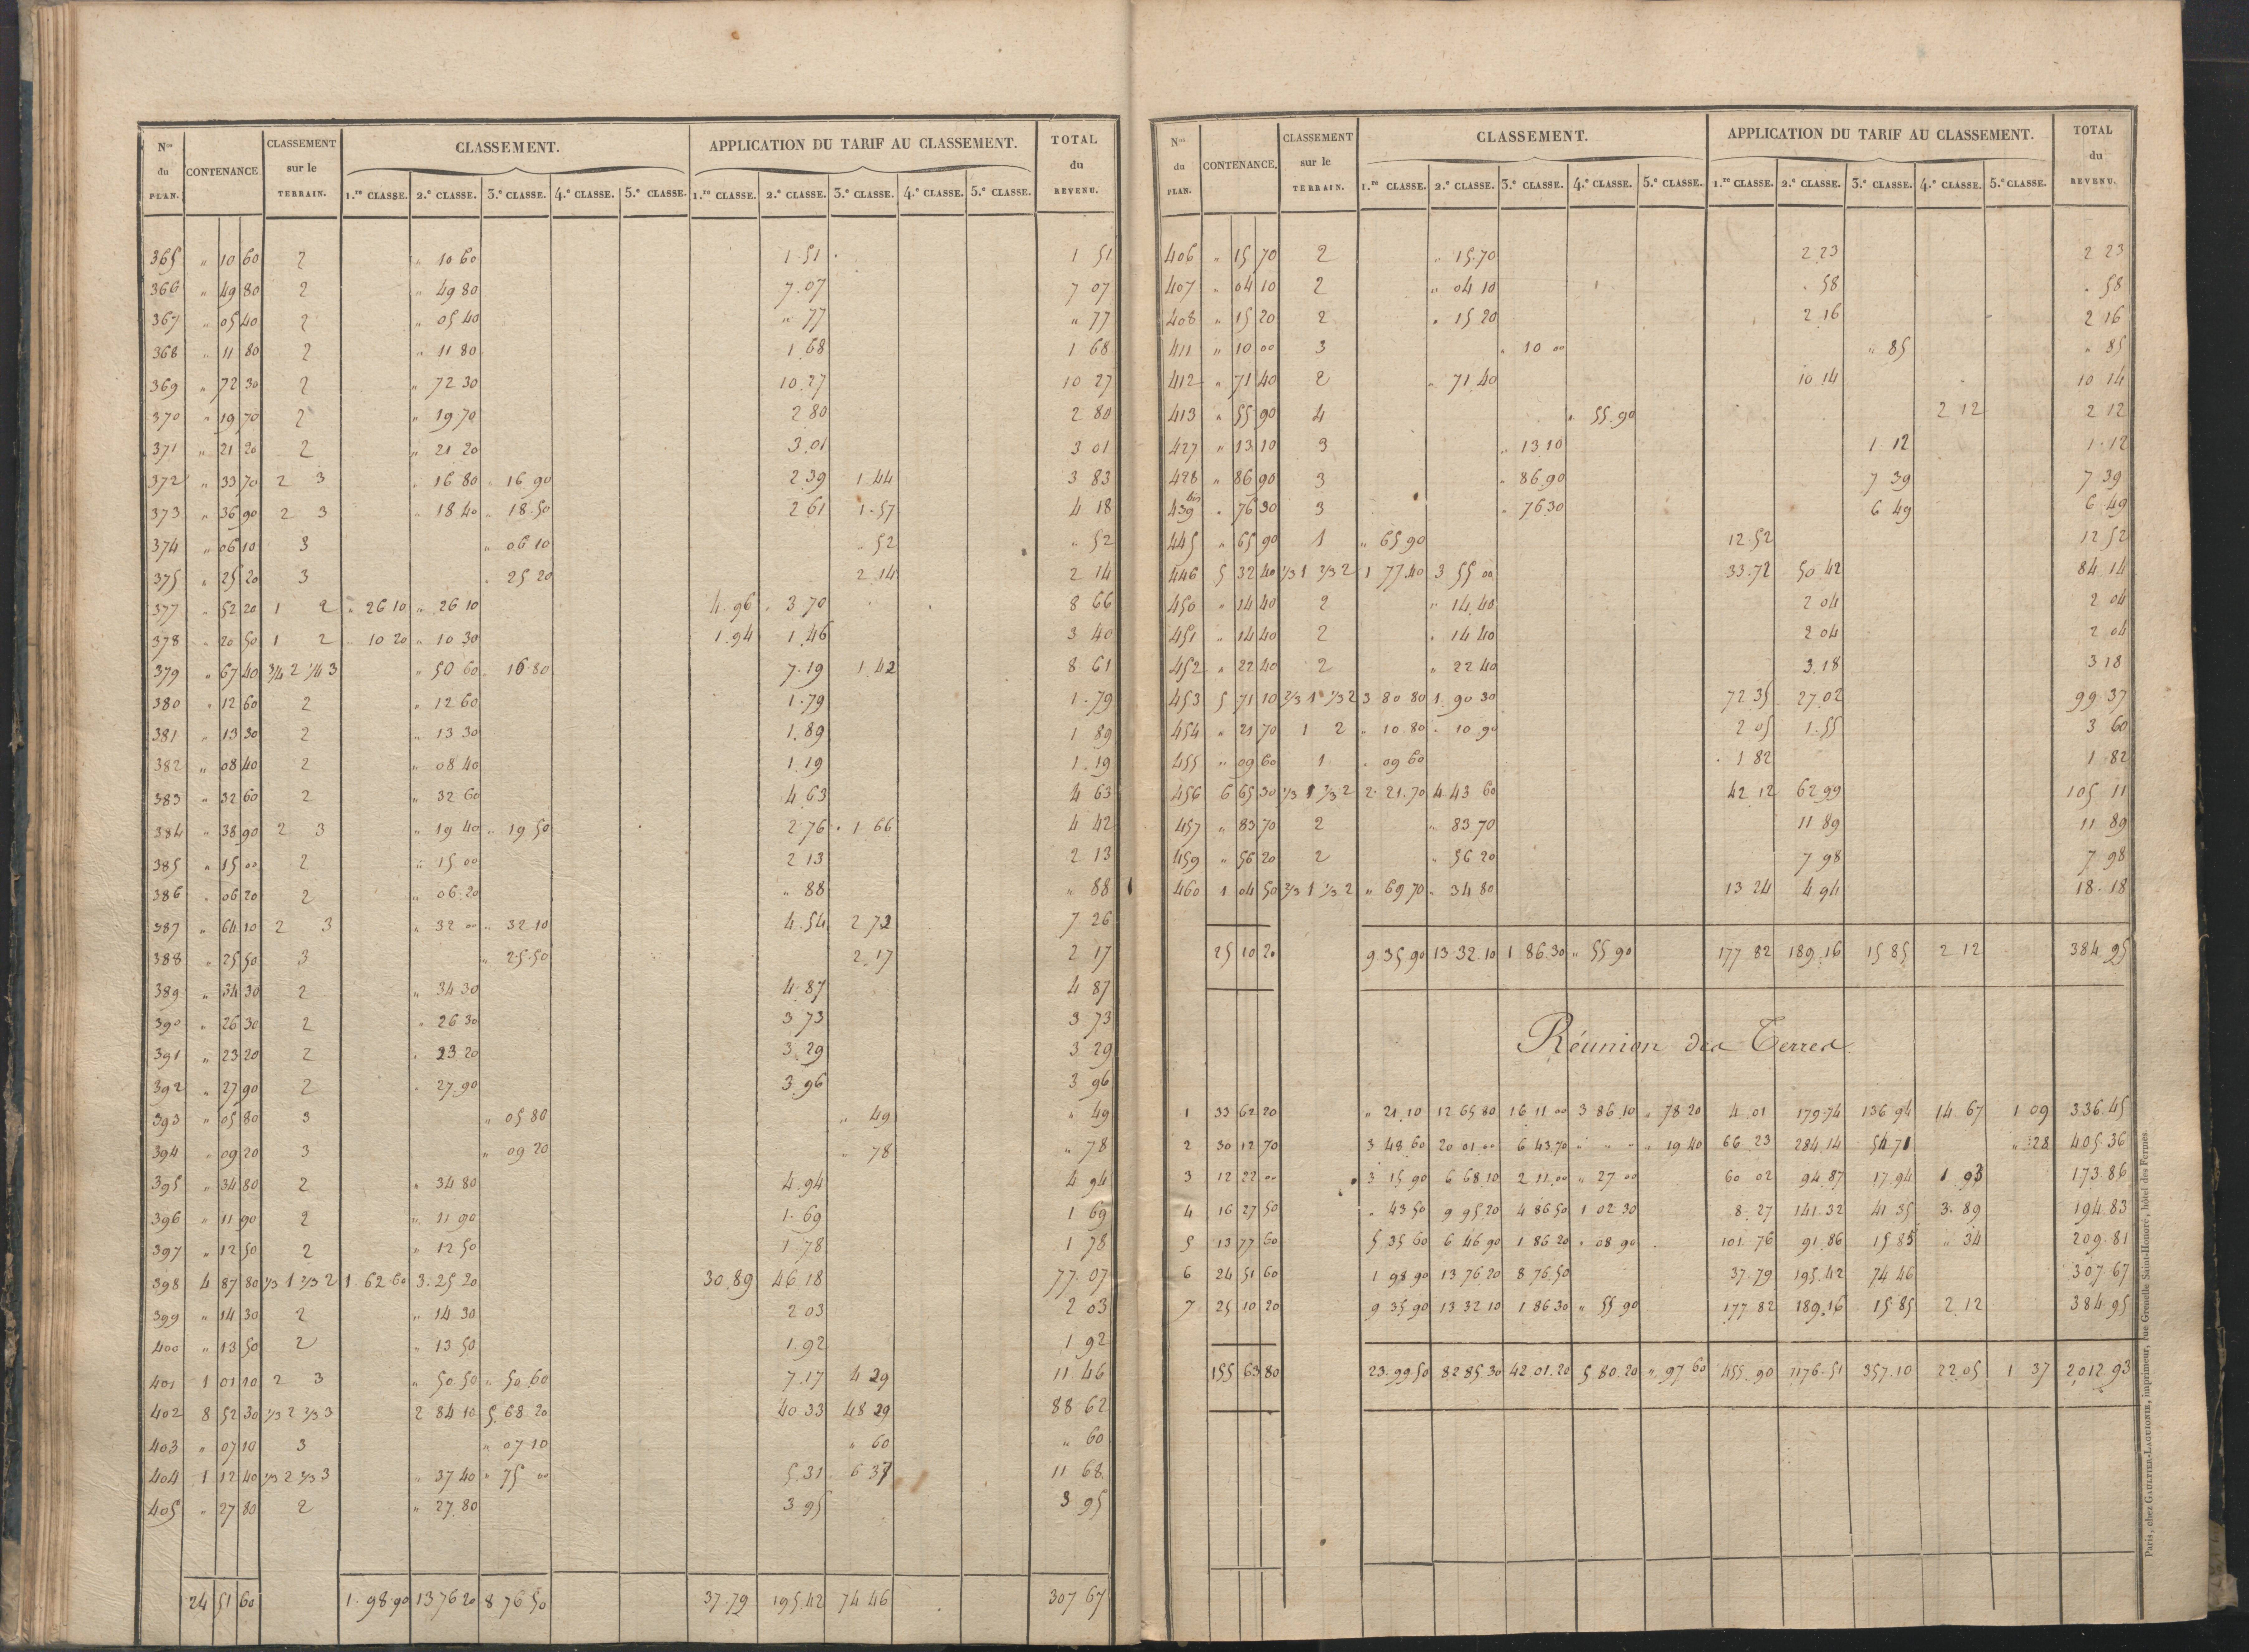 Nos du PLAN. CONTENANCE CLASSEMENT sur le TERRAIN. CLASSEMENT. APPLICATION DU TARIF AU CLASSEMENT. TOTAL du REVENU.
1.re CLASSE. 2.e CLASSE. 3.e CLASSE. 4.e CLASSE. 5.e CLASSE. 1.re CLASSE. 2.e CLASSE. 3.e CLASSE. 4.e CLASSE. 5.e CLASSE.
365 " 10 60 2 " 10 60 1.51 1 51
366 " 49 80 2 " 49 80 7.07 7 07
367 " 05 40 2 " 05 40 " 77 " 77
368 " 11 80 2 " 11 80 1.68 1 68
369 " 72 30 2 " 72 30 10.27 10 27
370 " 19 70 2 " 19 70 2 80 2 80
371 " 21 20 2 " 21 20 3.01 3 01
372 " 33 70 2 3 " 16 80 " 16 90 2 39 1 44 3 83
373 " 36 90 2 3 " 18 40 " 18.50 2 61 1.57 4 18
374 " 06 10 3 " 06 10 " 52 " 52
375 " 25 20 3 " 25 20 2.14 2 14
377 " 52 20 1 2 " 26 10 " 26 10 4.96 3.70 8 66
378 " 20 50 1 2 " 10 20 " 10 30 1.94 1.46 3 40
379 " 67 40 3/4 2 1/4 3 " 50 60 " 16.80 7.19 1 42 8 61
380 " 12 60 2 " 12 60 1.79 1.79
381 " 13 30 2 " 13 30 1.89 1 89
382 " 08 40 2 " 08 40 1.19 1.19
383 " 32 60 2 " 32 60 4.63 4 63
384 " 38 90 2 3 " 19 40 " 19 50 2.76 1 66 4 42
385 " 15 00 2 " 15 00 2 13 2 13
386 " 06 20 2 " 06.20 " 88 " 88
387 " 64 10 2 3 " 32 00 " 32 10 4.54 2 72 7 26
388 " 25 50 3 " 25.50 2.17 2 17
389 " 34 30 2 " 34 30 4.87 4 87
390 " 26 30 2 " 26 30 3 73 3 73
391 " 23 20 2 " 23 20 3.29 3 29
392 " 27 90 2 " 27.90 3.96 3 96
393 " 05 80 3 " 05 80 " 49 " 49
394 " 09 20 3 " 09 20 " 78 " 78
395 " 34 80 2 " 34 80 4.94 4 94
396 " 11 90 2 " 11 90 1.69 1 69
397 " 12 50 2 " 12 50 1.78 1 78
398 4 87 80 1/3 1 2/3 2 1 62 60 3.25 20 30.89 46 18 77.07
399 " 14 30 2 " 14 30 2 03 2 03
400 " 13 50 2 " 13 50 1.92 1 92
401 1 01 10 2 3 " 50.50 " 50 60 7.17 4 29 11 46
402 8 52 30 1/3 2 2/3 3 2 84 10 5.68 20 40 33 48 29 88 62
403 " 07 10 3 " 07 10 " 60 " 60
404 1 12 40 1/3 2 2/3 3 " 37 40 " 75 00 5.31 6 37 11 68
405 " 27 80 2 " 27.80 3 95 3 95
24 51 60 1.98.90 13 76 20 8 76 50 37.79 195.42 74 46 307 67
Nos du PLAN. CONTENANCE. CLASSEMENT sur le TERRAIN. CLASSEMENT. APPLICATION DU TARIF AU CLASSEMENT. TOTAL du REVENU.
1.re CLASSE. 2.e CLASSE. 3.e CLASSE. 4.e CLASSE. 5.e CLASSE. 1.re CLASSE. 2.e CLASSE. 3.e CLASSE. 4.e CLASSE. 5.e CLASSE.
406 " 15 70 2 " 15.70 2 23 2 23
407 " 04 10 2 " 04 10 " 58 " 58
408 " 15 20 2 " 15 20 2 16 2 16
411 " 10 00 3 " 10 00 " 85 " 85
412 " 71 40 2 " 71.40 10 14 10 14
413 " 55 90 4 " 55.90 2 12 2 12
427 " 13 10 3 " 13 10 1 12 1.12
428 " 86 90 3 " 86.90 7 39 7 39
439 bis " 76 30 3 " 76 30 6 49 6 49
445 " 65 90 1 " 65 90 12.52 12 52
446 5 32 40 1/3 1 2/3 2 1 77.40 3 55 00 33.72 50 42 84 14
450 " 14 40 2 " 14.40 2 04 2 04
451 " 14 40 2 " 14 40 2 04 2 04
452 " 22 40 2 " 22 40 3.18 3 18
453 5 71 10 2/3 1 1/3 2 3 80 80 1.90 30 72 35 27.02 99 37
454 " 21 70 1 2 " 10.80 " 10.90 2 05 1.55 3 60
455 " 09 60 1 " 09 60 1 82 1 82
456 6 65 30 1/3 1 2/3 2 2.21.70 4 43 60 42 12 62 99 105 11
457 " 83 70 2 " 83 70 11 89 11 89
459 " 56 20 2 " 56 20 7 98 7 98
460 1 04 50 2/3 1 1/3 2 " 69 70 " 34 80 13 24 4 94 18.18
25 10 20 9 35 90 13 32.10 1 86.30 " 55 90 177 82 189.16 15 85 2 12 384.95
Réunion des Terres
1 33 62 20 " 21.10 12 65 80 16 11 00 3 86.10 " 78 20 4.01 179.74 136 94 14.67 1 09 336.45
2 30 12 70 3 48.60 20 01 00 6 43.70 " " " " 19 40 66.23 284.14 54.71 " 28 405.36
3 12 22 00 3 15 90 6 68.10 2 11.00 " 27 00 60 02 94.87 17.94 1 03 173.86
4 16 27 50 " 43 50 9 95.20 4 86 50 1 02 30 8.27 141.32 41 35 3.89 194.83
5 13 77 60 5 35 60 6 46 90 1 86 20 " 08.90 101.76 91.86 15 85 " 34 209.81
6 24 51 60 1 98 90 13 76.20 8 76.50 37.79 195.42 74 46 307.67
7 25 10 20 9 35 90 13 32 10 1 86 30 " 55.90 177 82 189.16 15.85 2 12 384.95
155 63 80 23.99 50 82 85 30 42 01.20 5 80.20 " 97 60 455.90 1176.51 357.10 22.05 1 37 2012.93
Paris, chez GAULTIER-LAGUIONIE, imprimeur, rue Grenelle Saint-Honoré, hôtel des Fermes.